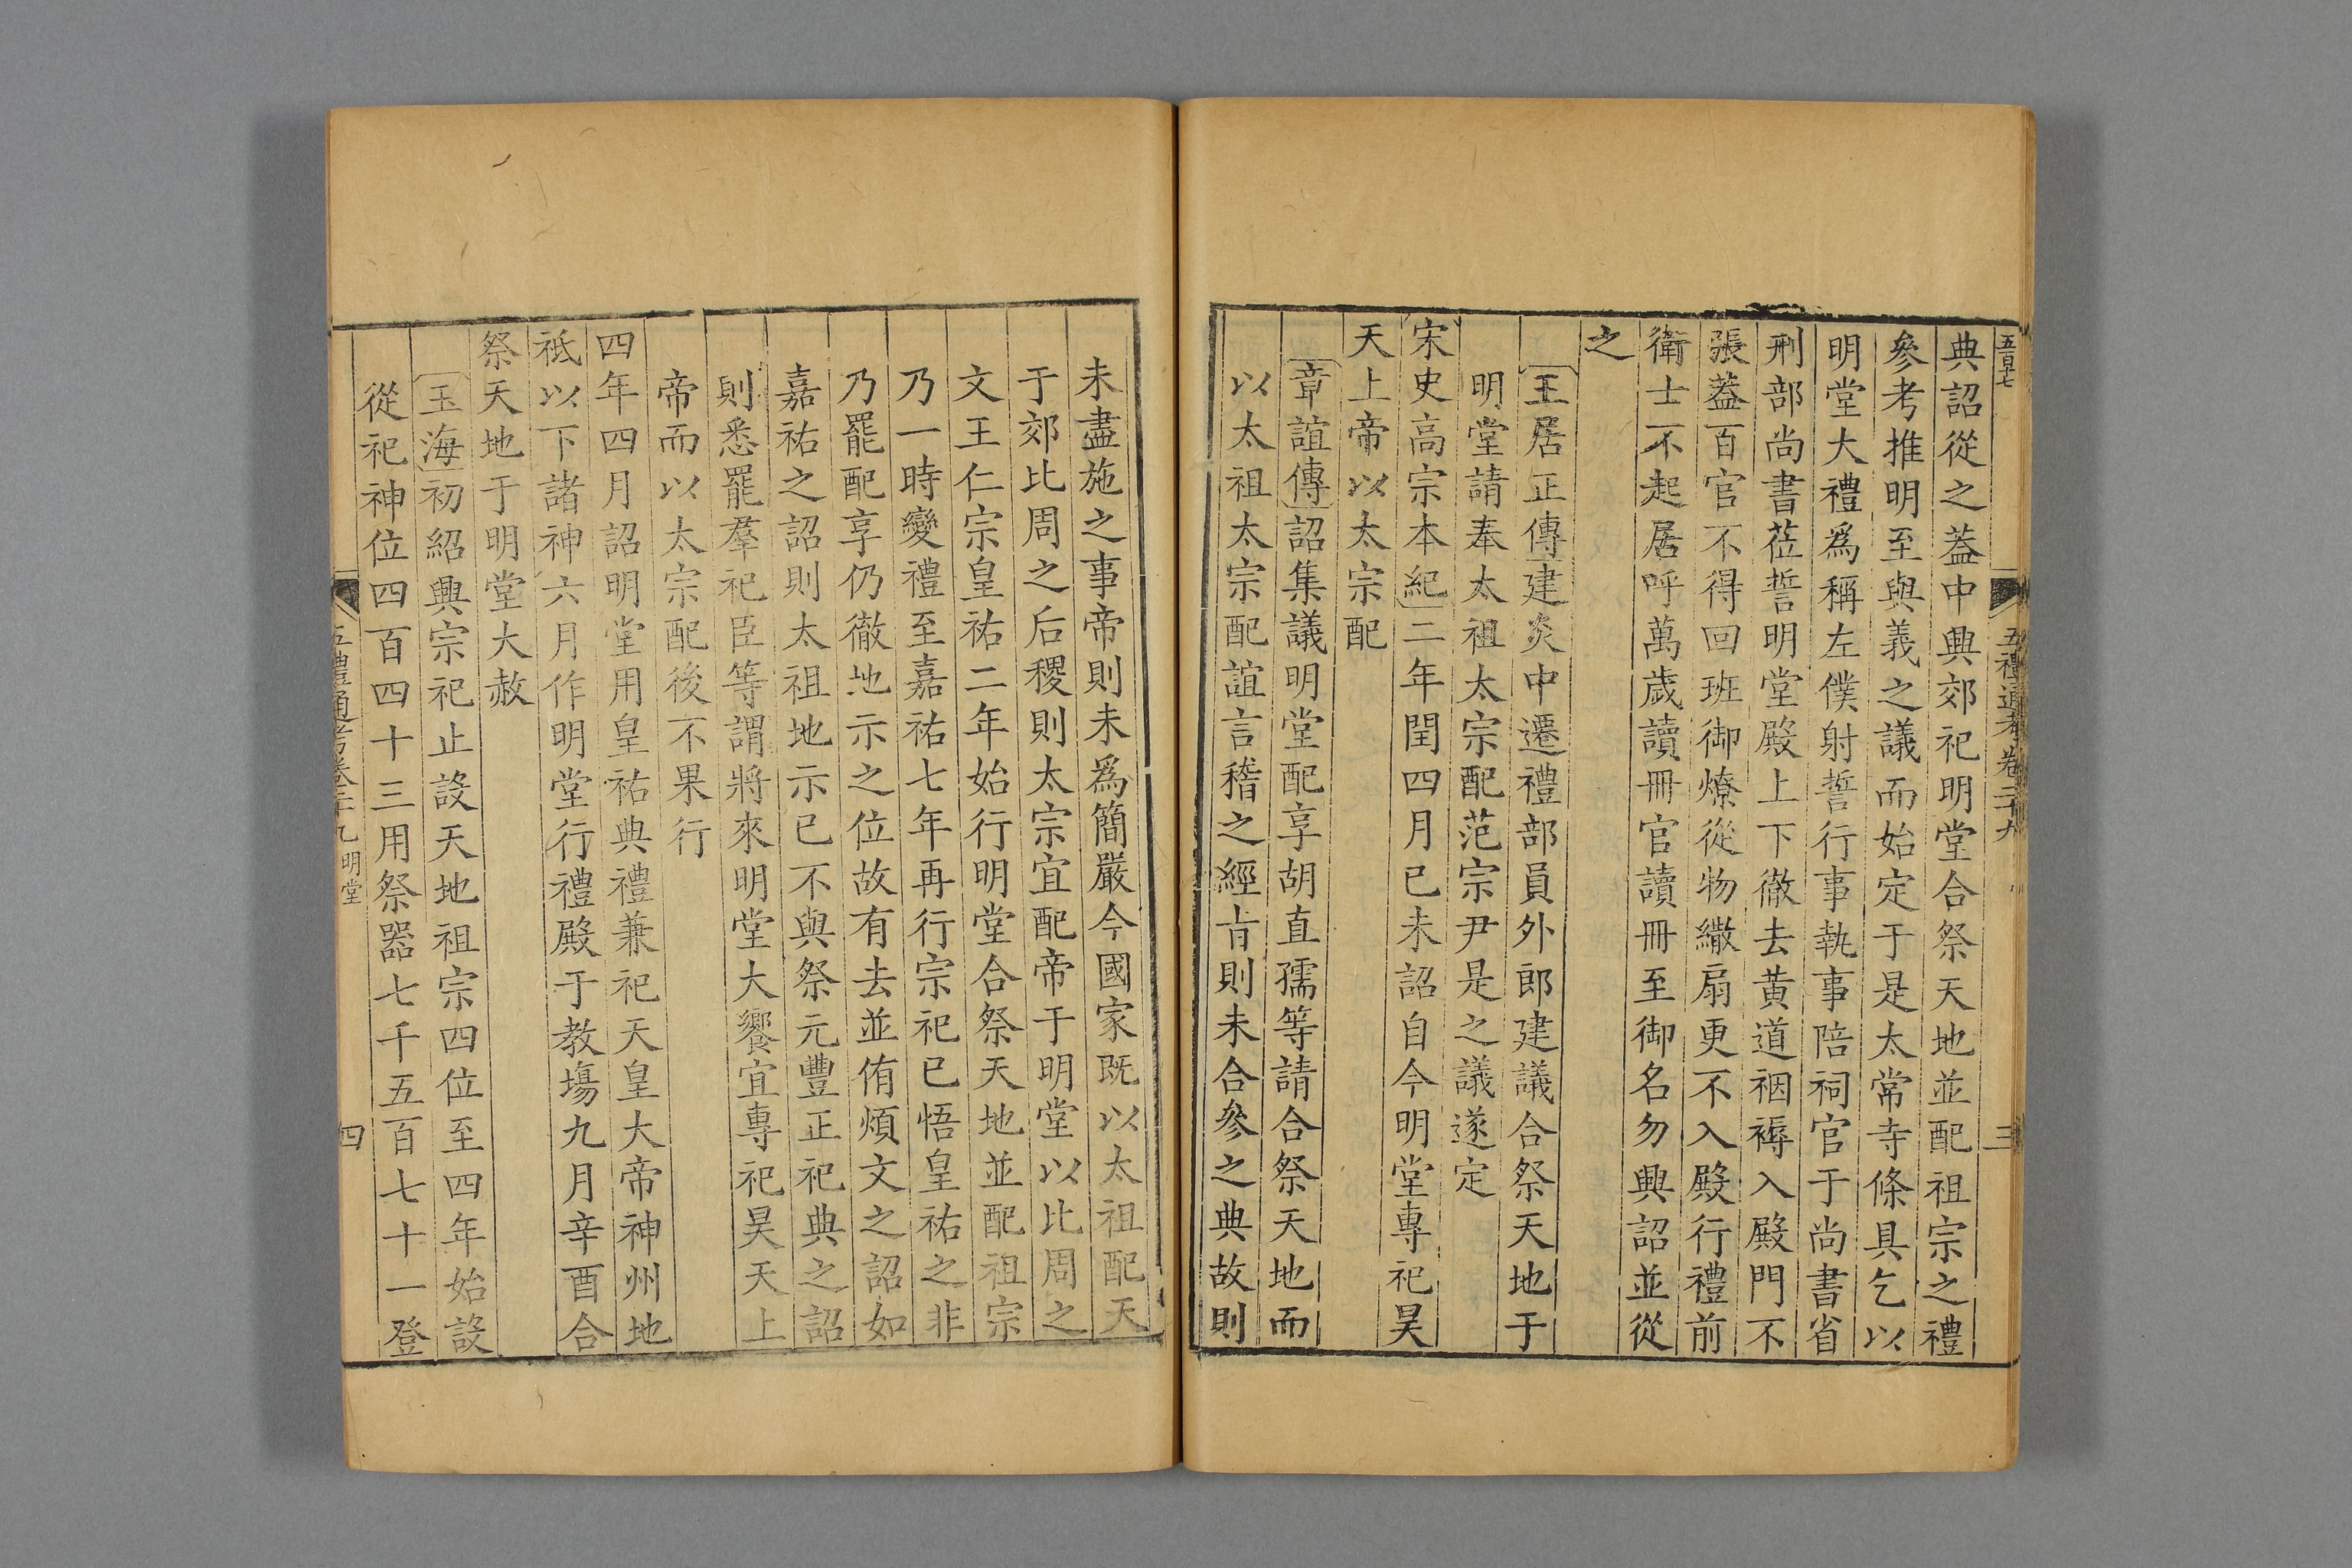 五百七
五禮通考卷二十九
三
典詔從之蓋中興郊祀明堂合祭天地並配祖宗之禮
參考推明至與義之議而始定于是太常寺條具乞以
明堂大禮爲稱左僕射誓行事執事陪祠官于尚書省
刑部尚書莅誓明堂殿上下徹去黄道裀褥入殿門不
張蓋百官不得回班御燎從物繖扇更不入殿行禮前
衛士不起居呼萬歲讀冊官讀冊至御名勿興詔並從
之
王居正傳建炎中遷禮部員外郎建議合祭天地于
明堂請奉太祖太宗配范宗尹是之議遂定
宋史高宗本紀二年閏四月己未詔自今明堂專祀昊
天上帝以太宗配
章誼傳詔集議明堂配享胡直孺等請合祭天地而
以太祖太宗配誼言稽之經㫖則未合參之典故則
未盡施之事帝則未爲簡嚴今國家既以太祖配天
于郊比周之后稷則太宗宜配帝于明堂以比周之
文王仁宗皇祐二年始行明堂合祭天地並配祖宗
乃一時變禮至嘉祐七年再行宗祀已悟皇祐之非
乃罷配享仍徹地示之位故有去並侑煩文之詔如
嘉祐之詔則太祖地示已不與祭元豐正祀典之詔
則悉罷羣祀臣等謂將來明堂大饗宜專祀昊天上
帝而以太宗配後不果行
四年四月詔明堂用皇祐典禮兼祀天皇大帝神州地
祗以下諸神六月作明堂行禮殿于教塲九月辛酉合
祭天地于明堂大赦
玉海初紹興宗祀止設天地祖宗四位至四年始設
從祀神位四百四十三用祭器七千五百七十一登
五禮通考卷二十九明堂
四